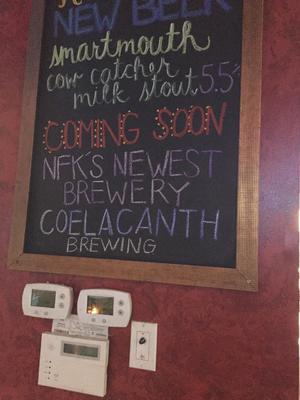 NEW BEER
smartmouth
cow catcher
milk stout 5.5%
COMING SOON
NFK'S NEWEST
BREWERY
COELACANTH
BREWING